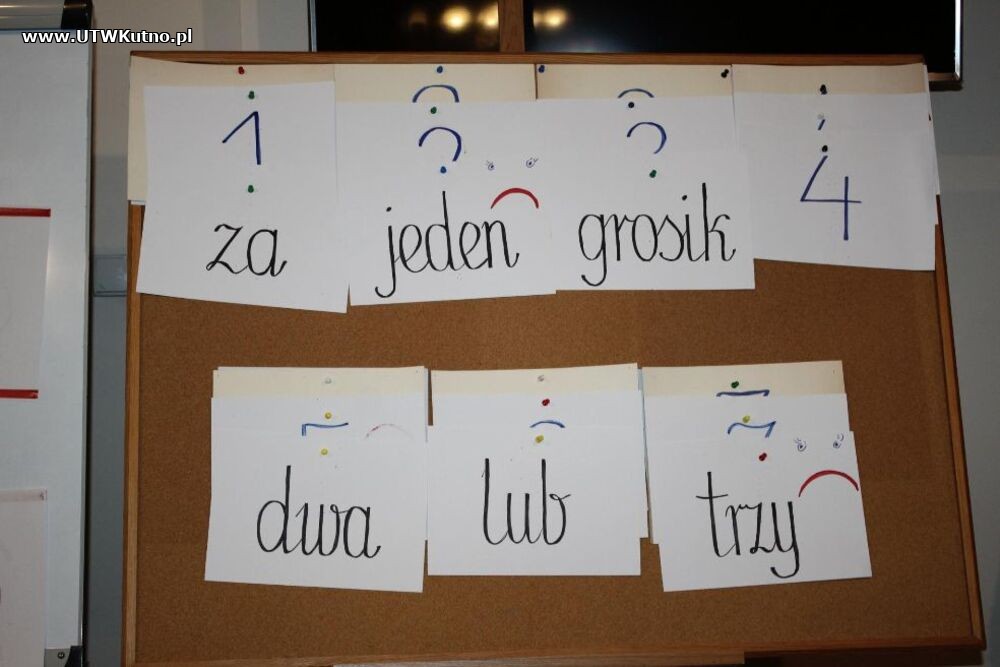 www.UTWKutno.pl
1 4
za jeden grosik
dwa lub trzy